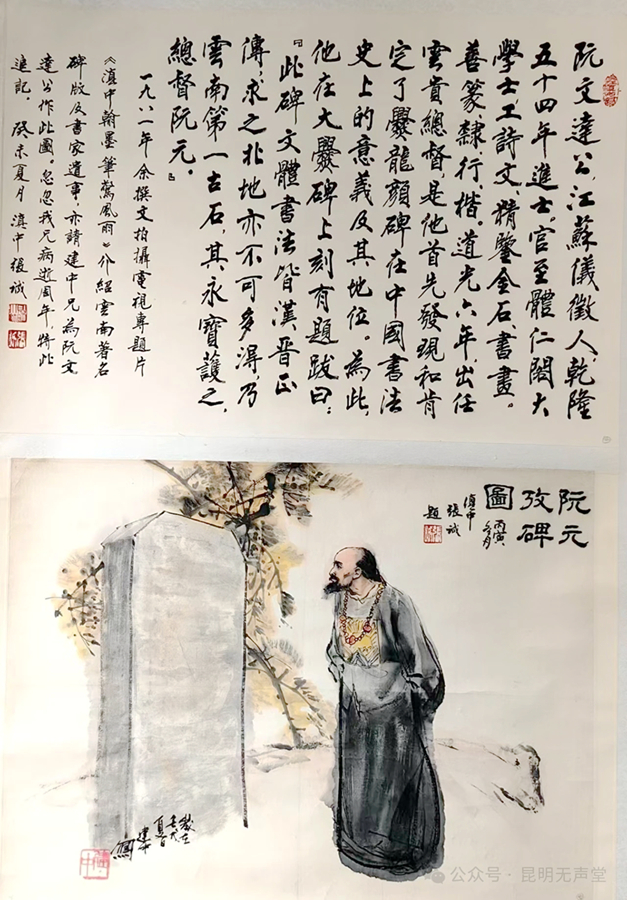 阮文達公，江蘇儀徵人，乾隆
五十四年進士，官至體仁閣大
學士，工詩文，精鑒金石書畫。
善篆隸行楷。道光六年出任
雲貴總督，是他首先發現和肯
定了爨龍顏碑在中國書法
史上的意義及其地位。為此，
他在大爨碑上刻有題跋曰：
『此碑文體書法皆漢晉正
傳，求之北地亦不可多得，乃
雲南第一古石，其永寶護之，
總督阮元。』
一九八一年余撰文拍攝電視專題片
《滇中翰墨筆驚風雨》介紹雲南著名
碑版及書家遺事，亦請建中兄為阮文
達公作此圖。忽忽我兄病逝周年，特此
追記。癸未夏月滇中張誠
阮元
攷碑
圖
丙寅
冬月
滇中
張誠
題
夏日
建中
公众号·昆明无声堂